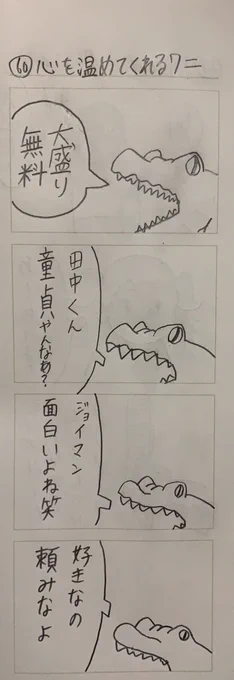 60 心を温めてくれるワニ
大盛り
無料
田中くん
童貞やんなぁ?
ジョイマン
面白いよね笑
好きなの
頼みなよ